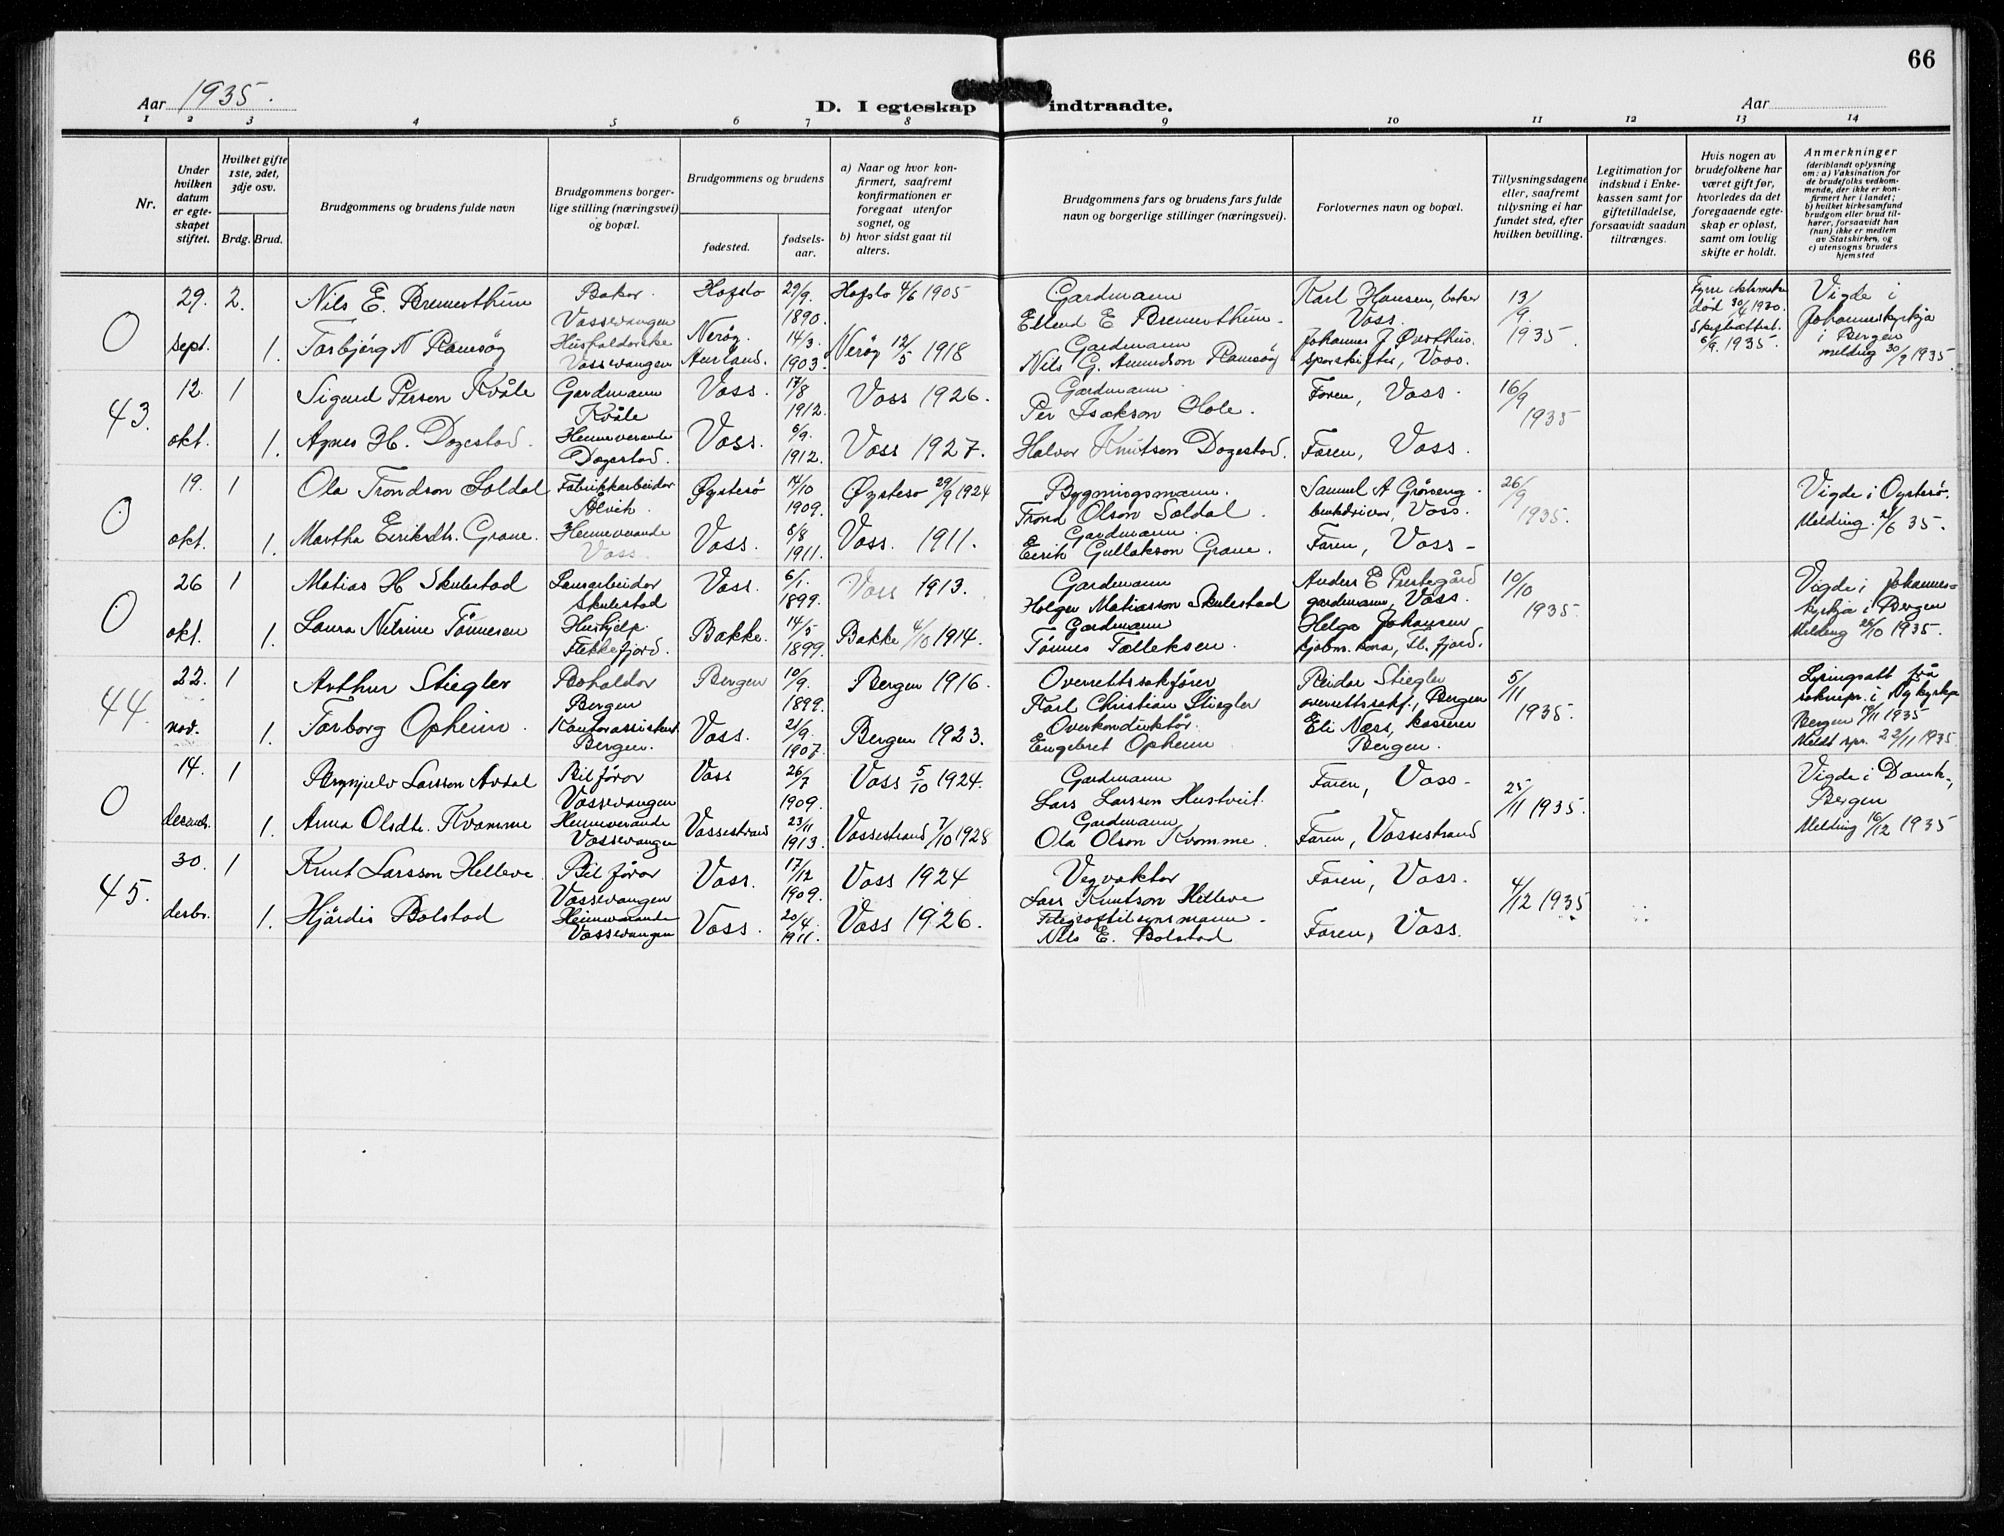 66
Aar 1935.
D. I egteskap indtraadte.
Aar
1 2 3 4 5 6 7 8 9 10 11 12 13 14
Nr.
Under hvilken datum er egteskapet stiftet.
Hvilket gifte 1ste, 2det, 3dje osv.
Brdg. Brud.
Brudgommens og brudens fulde navn
Brudgommens borgerlige stilling (næringsvei) og bopæl.
Brudgommens og brudens
fødested.
fødselsaar.
a) Naar og hvor konfirmert, saafremt konfirmationen er foregaat utenfor sognet, og
b) hvor sidst gaat til alters.
Brudgommens fars og brudens fars fulde navn og borgerlige stillinger (næringsvei).
Forlovernes navn og bopæl.
Tillysningsdagene eller, saafremt tillysning ei har fundet sted, efter hvilken bevilling.
Legitimation for indskud i Enkekassen samt for giftetilladelse, forsaavidt saadan tiltrænges.
Hvis nogen av brudefolkene har været gift før, hvorledes da det foregaaende egteskap er opløst, samt om lovlig skifte er holdt.
Anmerkninger
(deriblandt oplysning om: a) Vaksination for de brudefolks vedkommende, der ikke er konfirmert her i landet; b) hvilket kirkesamfund brudgom eller brud tilhører, forsaavidt han (hun) ikke er medlem av Statskirken, og c) utensogns bruders hjemsted
0 29. sept. 2. Nils E. Bremerthun Baker. Vossevangen Hafslo 29/9. 1890. Hafslo 4/6 1905 Gardmann Ellend E Bremerthun. Karl Hansen, baker Voss. 13/9 1935 død 30/4 1930 6/9. 1935. Vigde i Johanneskyrkja i Bergen melding 30/9 1935.
1. Torbjørg N Ramsøy Vossevangen Nerøy Aurland. 14/3. 1903. Nerøy 12/5 1918 Gardmann Nils G. Amundson Ramsøy Johannes J Øvsthus sporskifter, Voss.
43. 12. okt. 1 Sigurd Person Kvåle Gardmann Kvåle Voss. 17/8 1912. Voss 1926. Gardmann Per Isakson Hole. Faren, Voss. 16/9 1935
1. Agnes H. Dagestad. Heimeverande Dagestad. Voss. 6/9. 1912. Voss 1927. Halvor Knutsen Dagestad. Faren, Voss.
0 19. okt. 1 Ola Trondson Soldal Fabrikkarbeidar Ålvik. Øystesø 14/10 1909. Øystesø 29/9 1924 Bygningsmann. Trond Olson Soldal. Samuel A Grøneng bruksdrivar, Voss. 26/9 1935. Vigde i Øystesø. Melding 35.
1. Martha Eiriksdtr. Graue. Heimeverande Voss. Voss. 8/8 1911. Voss. 1911. Gardmann. Eirik Gullakson Graue. Faren, Voss
0 26 okt. 1 Matias H Skulestad Skulestad Voss. 6/1. 1899. Voss 1913. Gardmann Holger Matiasson Skulestad Anders E Prestegård gardmann, Voss. 10/10 1935. Vigde i Johanneskyrkja i Bergen Melding 26/10 1935.
1. Laura Netrine Tønnesen Hushjelp. Flekkefjord. Bakke. 14/5 1899. Bakke 4/10 1914. Gardmann Tønnes Tolleksen. Helga Johansen kjøbm. kona, Fl. fjord.
44. 22. nov. 1 Arthur Stiegler Bokholdar Bergen Bergen 10/9. 1899. Bergen 1916. Overrettssakfører Karl Christian Stiegler Reidar Stiegler overrettssakf., Bergen 5/11 1935. Lysingsatt. frå soknepr. i Nykyrkja Bergen 19/11 1935 Meldt spr. 22/11 1935
1. Torborg Opheim. Kontorassistent Bergen. Voss. 21/9. 1907. Bergen 1923. Overkonduktør. Engebret Opheim Eli Næss, kasserer Bergen.
0 14. decembr. 1 Brynjulv Larsson Avdal Bilførar Vossevangen Voss 26/7 1909. Voss 5/10 1924. Gardmann Lars Larssen Hustveit. Faren, Voss 25/11 1935. Vigde i Domk., Bergen Melding 16/12 1935
1. Anna Olsdtr. Kvamme Heimeverande Vossevangen Vossestrand 23/11 1913. Vossestrand 7/10 1928 Gardmann Ola Olson Kvamme. Faren, Vossestrand
45. 30. desbr. 1 Knut Larsson Helleve. Bilførar Vossevangen Voss. 17/12 1909. Voss 1924 Vegvaktar Lars Knutson Helleve Faren, Voss. 4/12 1935
1. Hjørdis Bolstad Heimverande Vossevangen Voss. 20/4. 1911. Voss 1926. Nils E. Bolstad Faren, Voss.